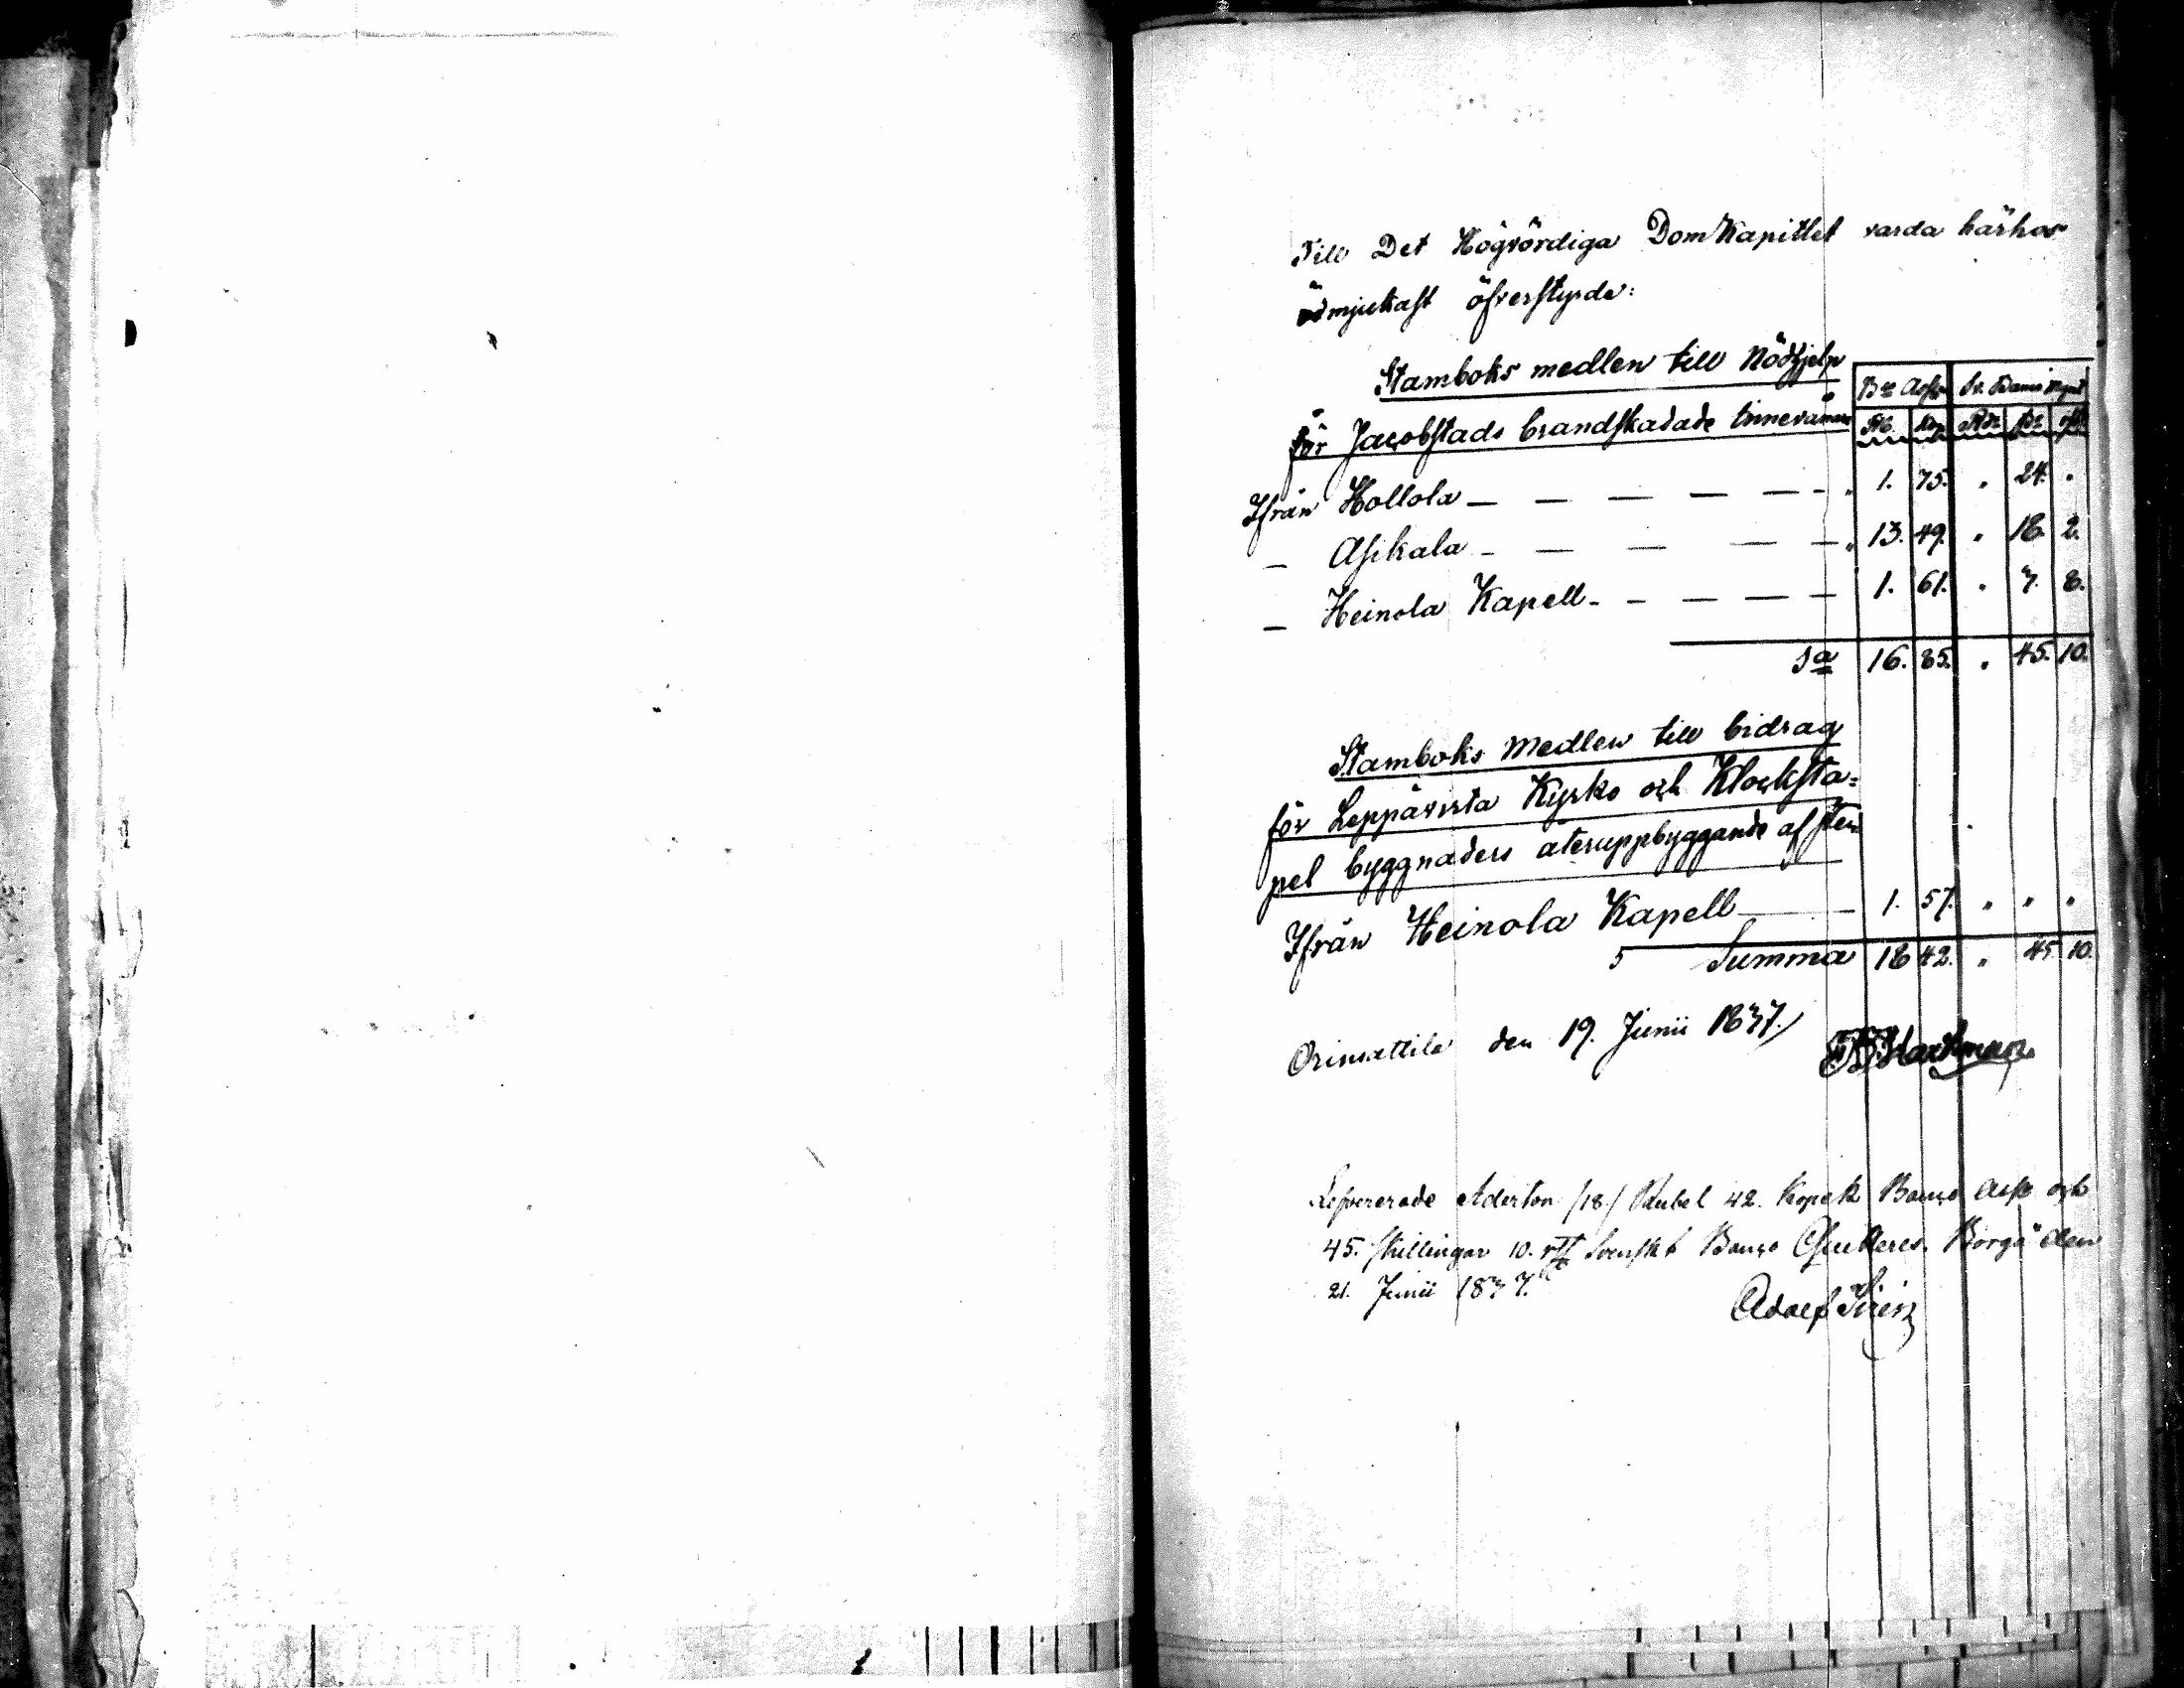 Till Det Högvördiga DomKapitlet varda härhos
ödmjukast öfverstyrde:
Stamboks medlen till Nödhjelp
för Jacobstads brandskadade Innevånare
Bco Assr Sv. Banco Mynt
Rb. Kop Rdr sk. rst
Ifrån Hollola — — — — — " 1. 75. " 24. "
— Asikala — — — — — " 13. 49. " 18. 2.
— Heinola Kapell — — — — — 1. 61. " 7. 8.
Sa 16. 85. " 45. 10.
Stamboks Medlen till bidrag
för Leppävirta Kyrko och Klocksta=
pel byggnaders återuppbyggande af sten
Ifrån Heinola Kapell — — 1. 57. " " "
Summa 18 42. " 45 10.
Orimattila den 19. Junii 1837.
Hartman
Lefvererade Aderton /18./ Rubel 42. Kopek Banco Assr och
45. skillingar 10. rst Svenskt Banco Qvitteres. Borgå den
21. Junii 1837.
Adolf Sirén